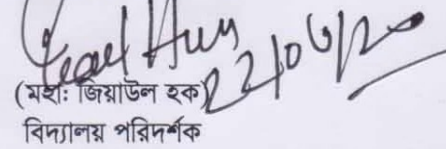 22/06/20
(মোঃ জিয়াউল হক)
বিদ্যালয় পরিদর্শক